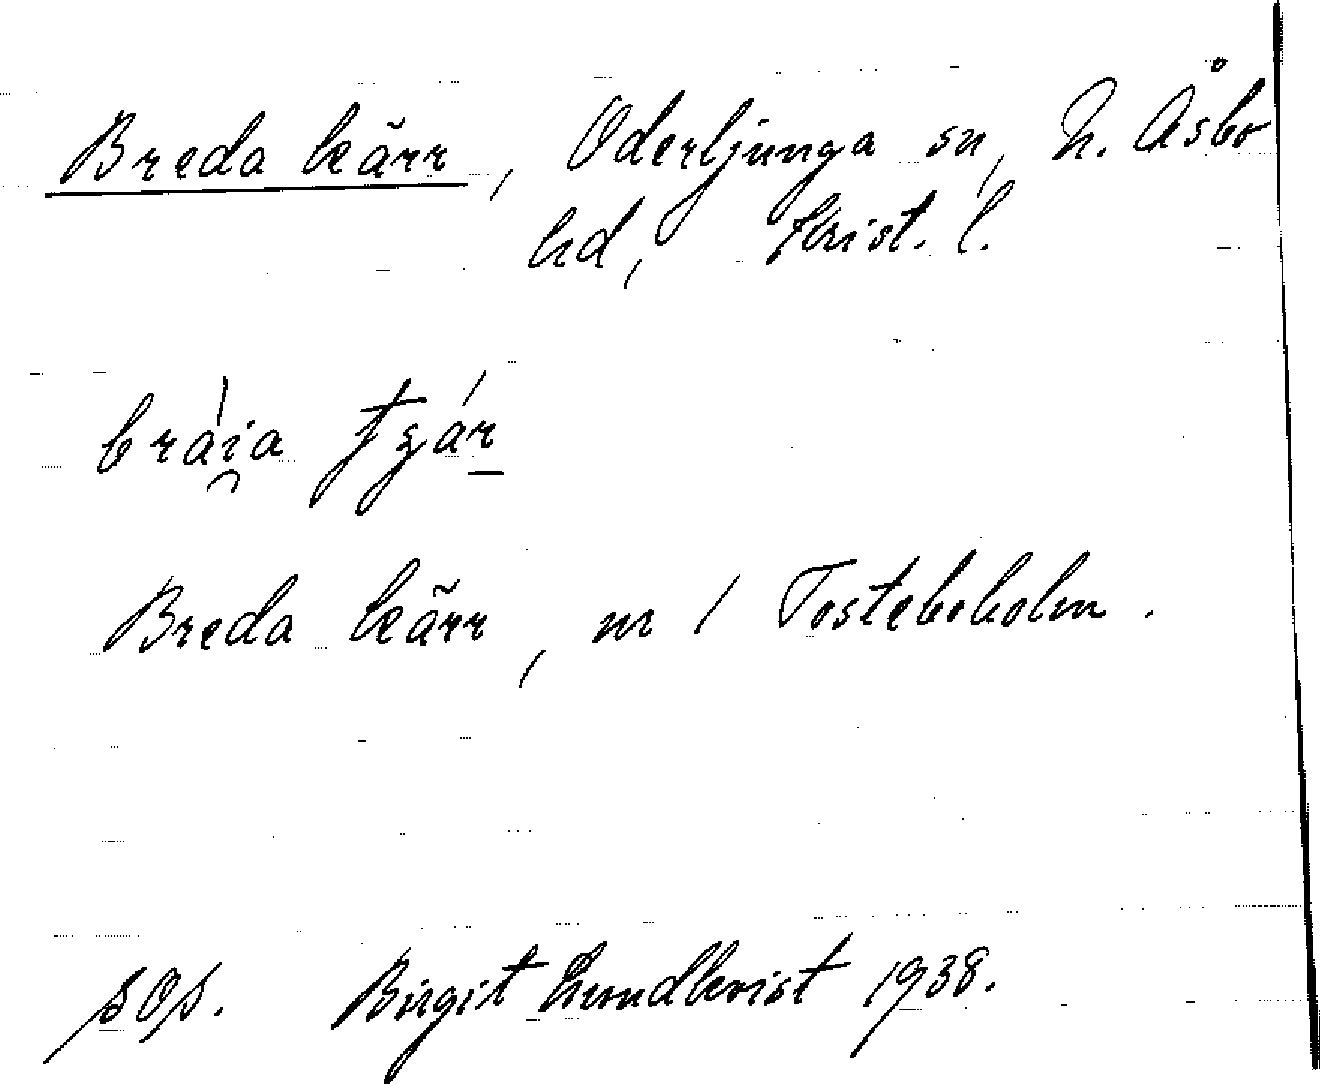 Breda kärr, Oderljunga sn, N. Åsbo
hd, Krist. l.
Breda kärr, nr 1 Tosteboholm.
Birgit Lundkvist 1938.